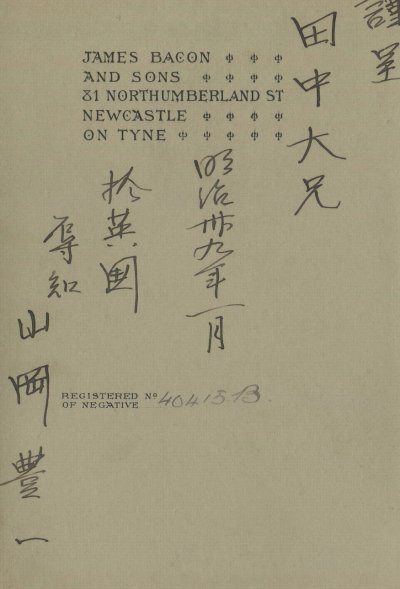 謹呈
田中大兄
JAMES BACON
AND SONS
81 NORTHUMBERLAND ST
NEWCASTLE
ON TYNE
明治卅九年一月
於英国
辱知
山岡豊一
REGISTERED Nº 40415B.
OF NEGATIVE